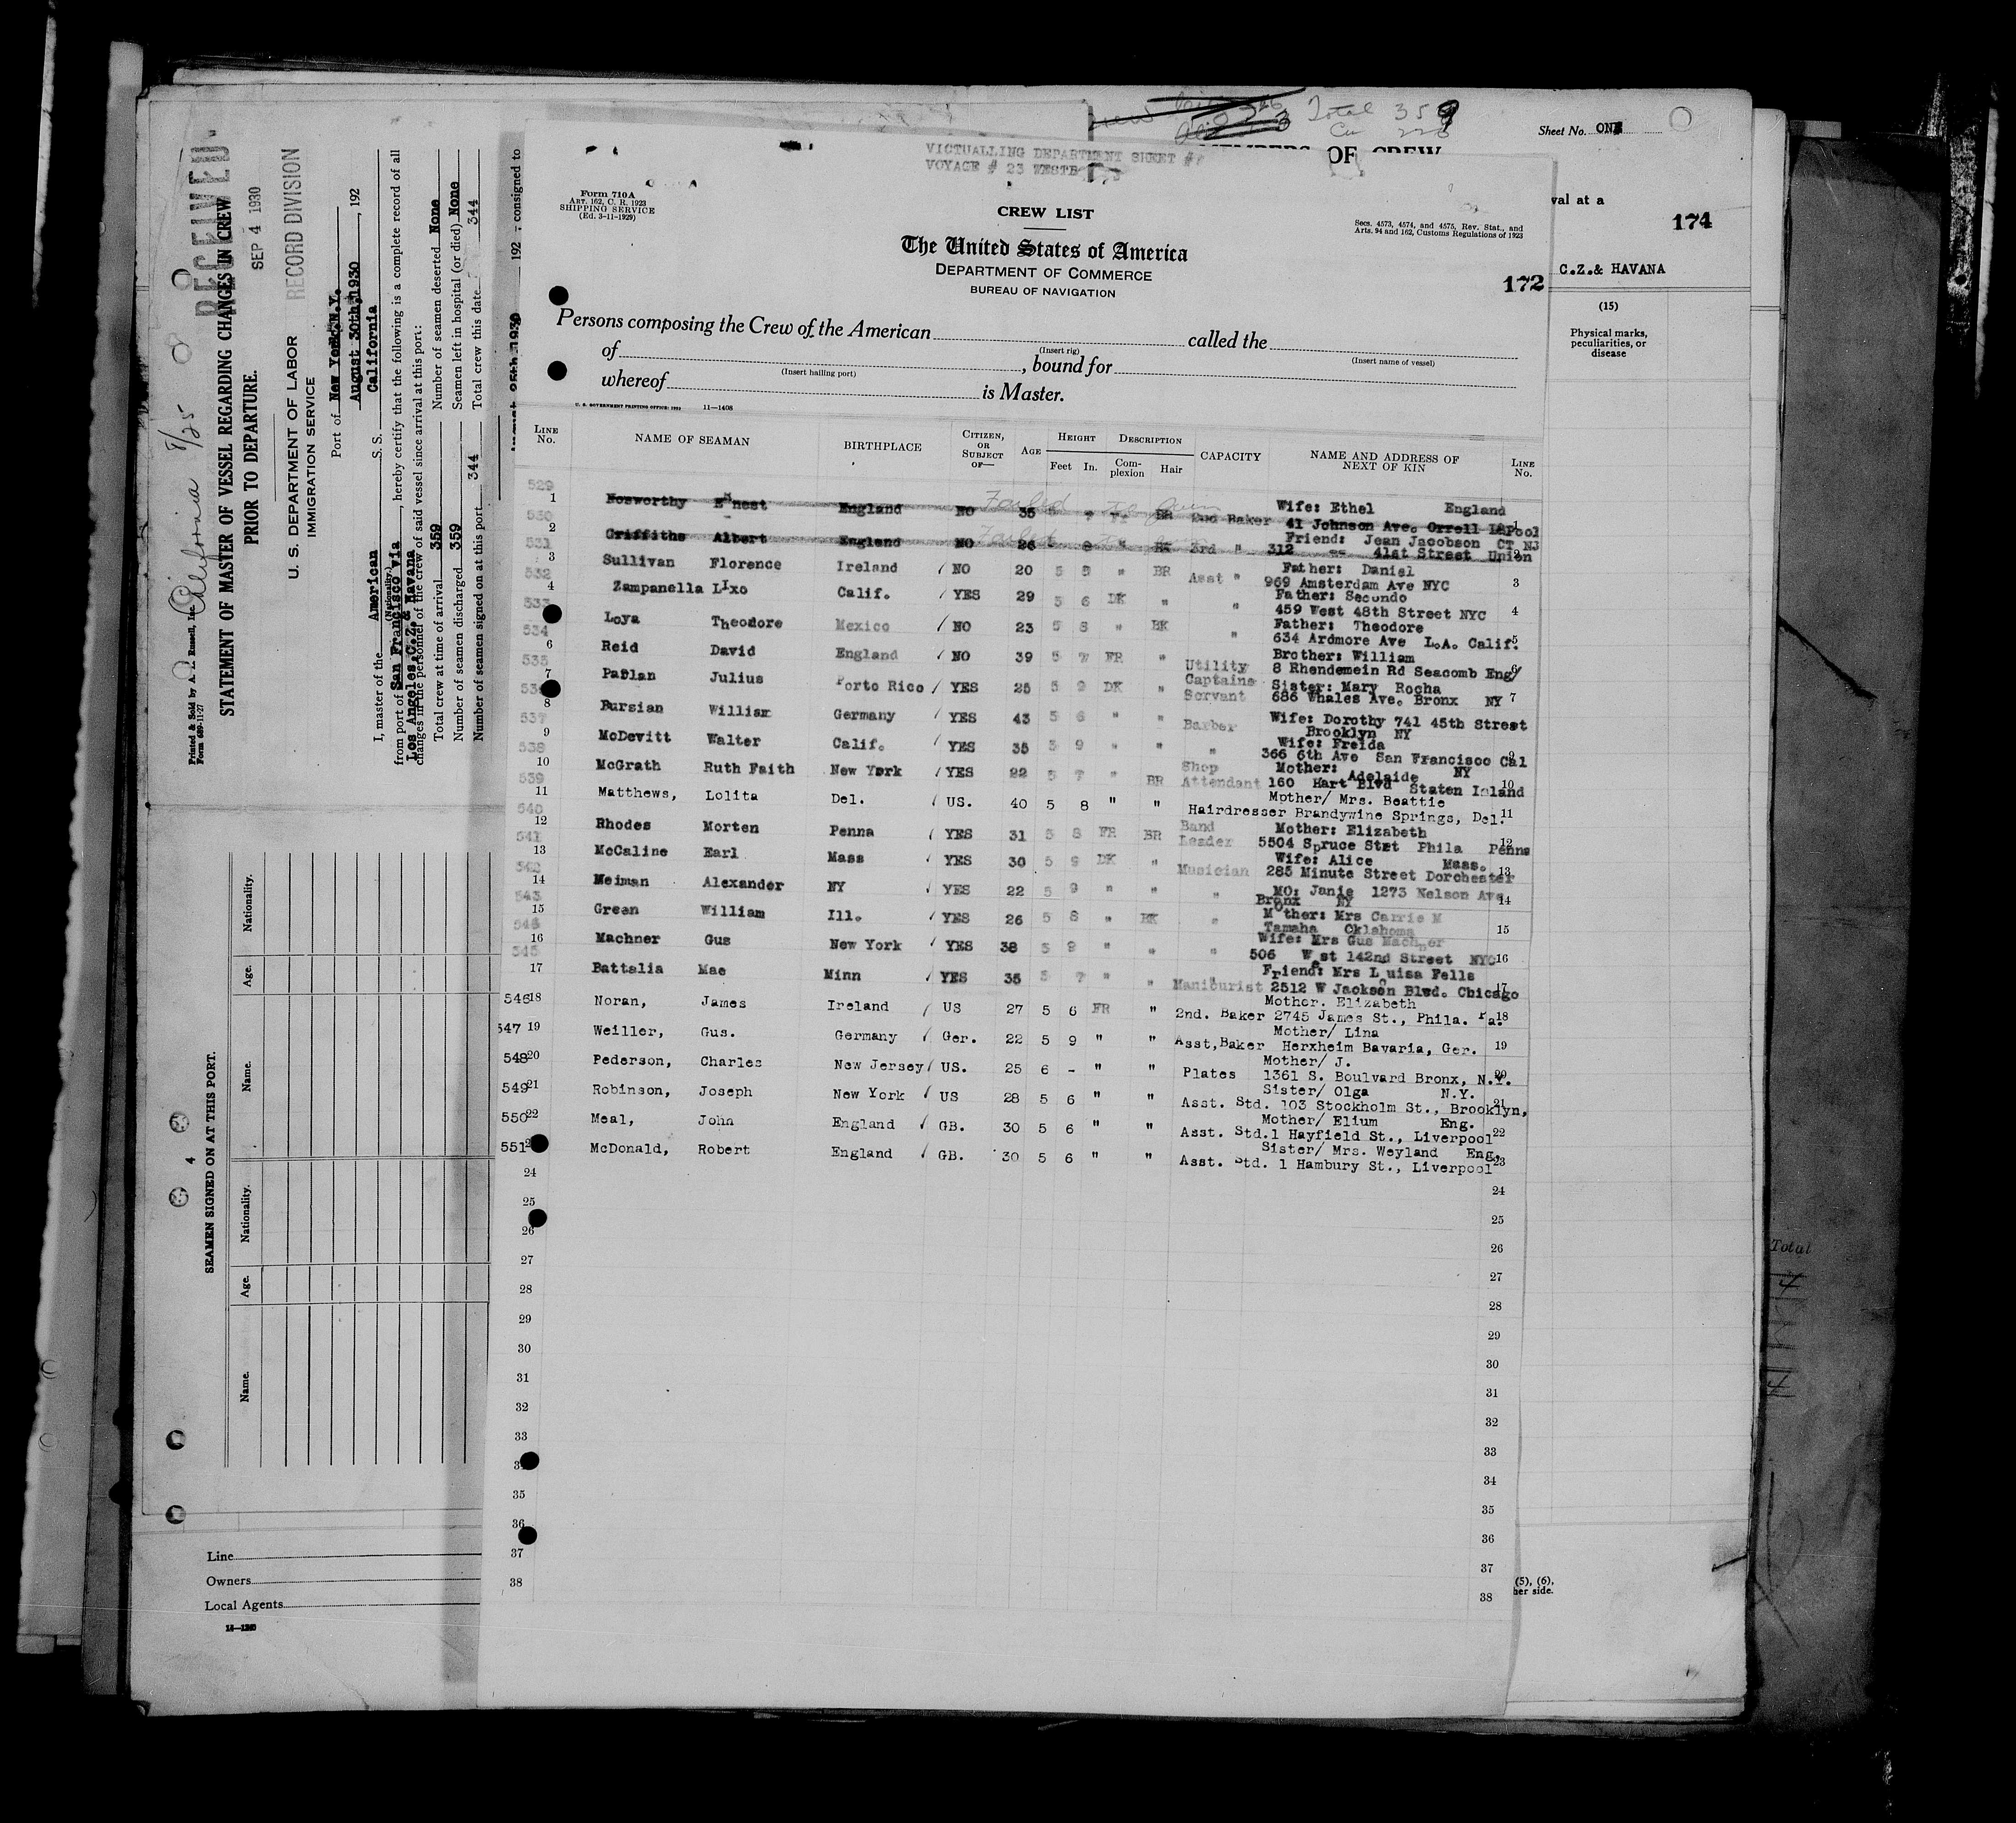 Total 359
Sheet No. ONE
MEMBERS OF CREW
VICTUALLING DEPARTMENT SHEET #7
VOYAGE # 23 WESTB
val at a
174
C.Z.& HAVANA
(15)
Physical marks,
peculiarities, or
disease
Form 710A
ART. 162, C. R. 1923
SHIPPING SERVICE
(Ed. 3-11-1929)
CREW LIST
The United States of America
DEPARTMENT OF COMMERCE
BUREAU OF NAVIGATION
Secs. 4573, 4574, and 4575, Rev. Stat., and
Arts. 94 and 162, Customs Regulations of 1923
172
Persons composing the Crew of the American called the
(Insert rig) (Insert name of vessel)
of , bound for
(Insert hailing port)
whereof is Master.
U. S. GOVERNMENT PRINTING OFFICE: 1929 11—1408
LINE No. NAME OF SEAMAN BIRTHPLACE CITIZEN, OR SUBJECT OF— AGE HEIGHT Feet In. DESCRIPTION Complexion Hair CAPACITY NAME AND ADDRESS OF NEXT OF KIN LINE No.
529 1 Nosworthy Ernest England NO 35 5 7 FR BR 2nd Baker Wife: Ethel England 41 Johnson Ave. Orrell LRPool 1
Failed to Join
530 2 Griffiths Albert England NO 26 " BK 3rd " Friend: Jean Jacobson CT NJ 312 41st Street Union 2
Failed to Join
531 3 Sullivan Florence Ireland NO 20 5 8 " BR Asst " Father: Daniel 969 Amsterdam Ave NYC 3
532 4 Zampanella Lixo Calif. YES 29 5 6 DK " " Father: Secundo 459 West 48th Street NYC 4
533 Loya Theodore Mexico NO 23 5 8 " BK " Father: Theodore 634 Ardmore Ave L.A. Calif. 5
534 6 Reid David England NO 39 5 7 FR " Utility Brother: William 8 Rhendemein Rd Seacomb Eng 6
535 7 Pablan Julius Porto Rico YES 25 5 9 DK " Captains Servant Sister: Mary Rocha 686 Whales Ave. Bronx NY 7
8 Bursian William Germany YES 43 5 6 " " Barber Wife: Dorothy 741 45th Street Brooklyn NY
537 9 McDevitt Walter Calif. YES 35 5 9 " " " Wife: Freida 366 6th Ave San Francisco Cal 9
538 10 McGrath Ruth Faith New York YES 22 5 7 " BR Shop Attendant Mother: Adelaide NY 160 Hart Blvd Staten Island 10
539 11 Matthews, Lolita Del. US. 40 5 8 " " Hairdresser Mother/ Mrs. Beattie Brandywine Springs, Del. 11
540 12 Rhodes Morten Penna YES 31 5 8 FR BR Band Leader Mother: Elizabeth 5504 Spruce Stet Phila Penna 12
541 13 McCaline Earl Mass YES 30 5 9 DK " Musician Wife: Alice Mass. 285 Minute Street Dorchester 13
542 14 Neiman Alexander NY YES 22 5 9 " " " MO: Janie 1273 Nelson Ave Bronx NY 14
543 15 Green William Ill. YES 26 5 8 " BK " Mother: Mrs Carrie M Tamaha Oklahoma 15
16 Machner Gus New York YES 38 5 9 " " " Wife: Mrs Gus Machner 506 West 142nd Street NYC 16
545 17 Battalia Mae Minn YES 35 5 7 " " Manicurist Friend: Mrs Louisa Fells 2512 W Jackson Blvd. Chicago 17
546 18 Noran, James Ireland US 27 5 6 FR " 2nd. Baker Mother. Elizabeth 2745 James St., Phila. Pa. 18
547 19 Weiller, Gus. Germany Ger. 22 5 9 " " Asst,Baker Mother/ Lina Herxheim Bavaria, Ger. 19
548 20 Pederson, Charles New Jersey US. 25 6 - " " Plates Mother/ J. 1361 S. Boulvard Bronx, N.Y. 20
549 21 Robinson, Joseph New York US 28 5 6 " " Asst. Std. Sister/ Olga N.Y. 103 Stockholm St., Brooklyn, 21
550 22 Meal, John England GB. 30 5 6 " " Asst. Std. Mother/ Elium Eng. 1 Hayfield St., Liverpool 22
551 McDonald, Robert England GB. 30 5 6 " " Asst. Std. Sister/ Mrs. Weyland Eng. 1 Hambury St., Liverpool 23
24 24
25 25
26 26
27 27
28 28
29 29
30 30
31 31
32 32
33 33
34 34
35 35
36 36
37 37
38 38
California 8/25
RECEIVED.
SEP 4 1930
RECORD DIVISION
Printed & Sold by A. J. Russell, Inc.
Form 689-11-27
STATEMENT OF MASTER OF VESSEL REGARDING CHANGES IN CREW
PRIOR TO DEPARTURE.
U. S. DEPARTMENT OF LABOR
IMMIGRATION SERVICE
Port of New York.N.Y.
August 30th,1930, 192
I, master of the American S. S. California
(Nationality.)
from port of San Francisco via Los Angeles,C.Z.& Havana, hereby certify that the following is a complete record of all
changes in the personnel of the crew of said vessel since arrival at this port:
Total crew at time of arrival 359 Number of seamen deserted None
Number of seamen discharged 359 Seamen left in hospital (or died) None
Number of seamen signed on at this port 344 Total crew this date 344
August 25th 1930 192 ; consigned to
SEAMEN SIGNED ON AT THIS PORT.
Name. Age. Nationality. Name. Age. Nationality.
4
Line
Owners
Local Agents
14—1240
(5), (6),
her side.
Total
4
4